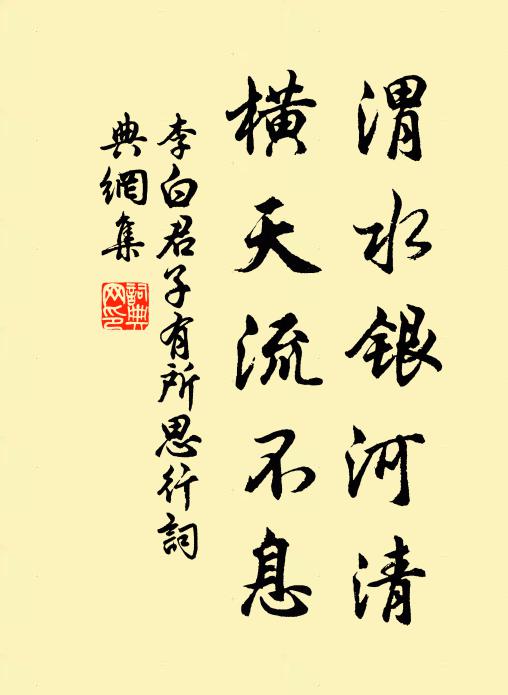 渭水銀河清
橫天流不息
李白君子有所思行詞
典網集
詞典
网印